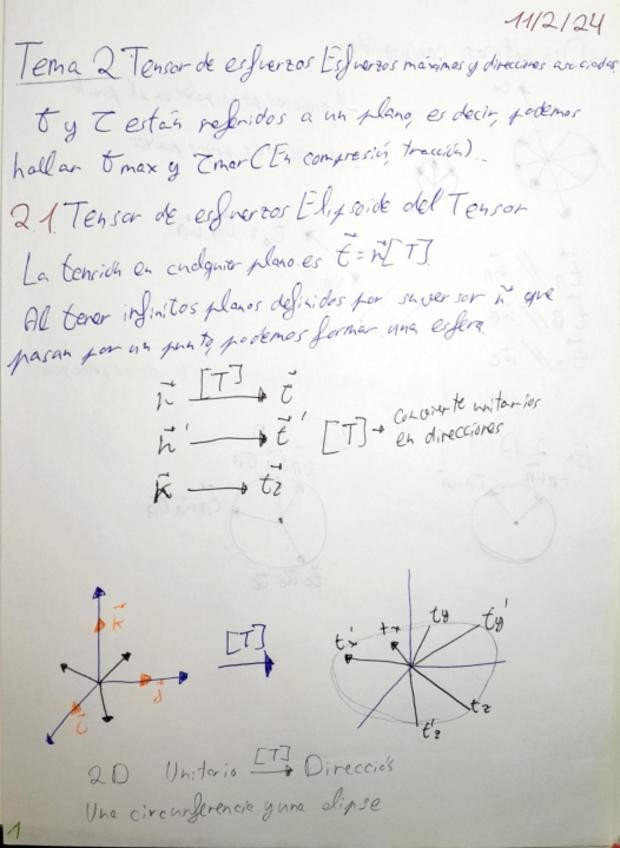 11/2/24
Tema 2 Tensor de esfuerzos. Esfuerzos máximos y direcciones asociadas
σ y τ están referidos a un plano, es decir, podemos
hallar σmax y τmax (En compresión, tracción)..
2.1. Tensor de esfuerzos Elipsoide del Tensor
La tensión en cualquier plano es t⃗ = n⃗[T].
Al tener infinitos planos definidos por su versor n⃗ que
pasan por un punto, podemos formar una esfera.
n⃗ [T] → t⃗
n⃗' → t⃗' [T] → convierte unitarios
en direcciones
k⃗ → t⃗z
k⃗ j⃗ i⃗
[T]
tx' tx ty ty'
tz tz'
2D Unitario [T] → Dirección
Una circunferencia y una elipse
1